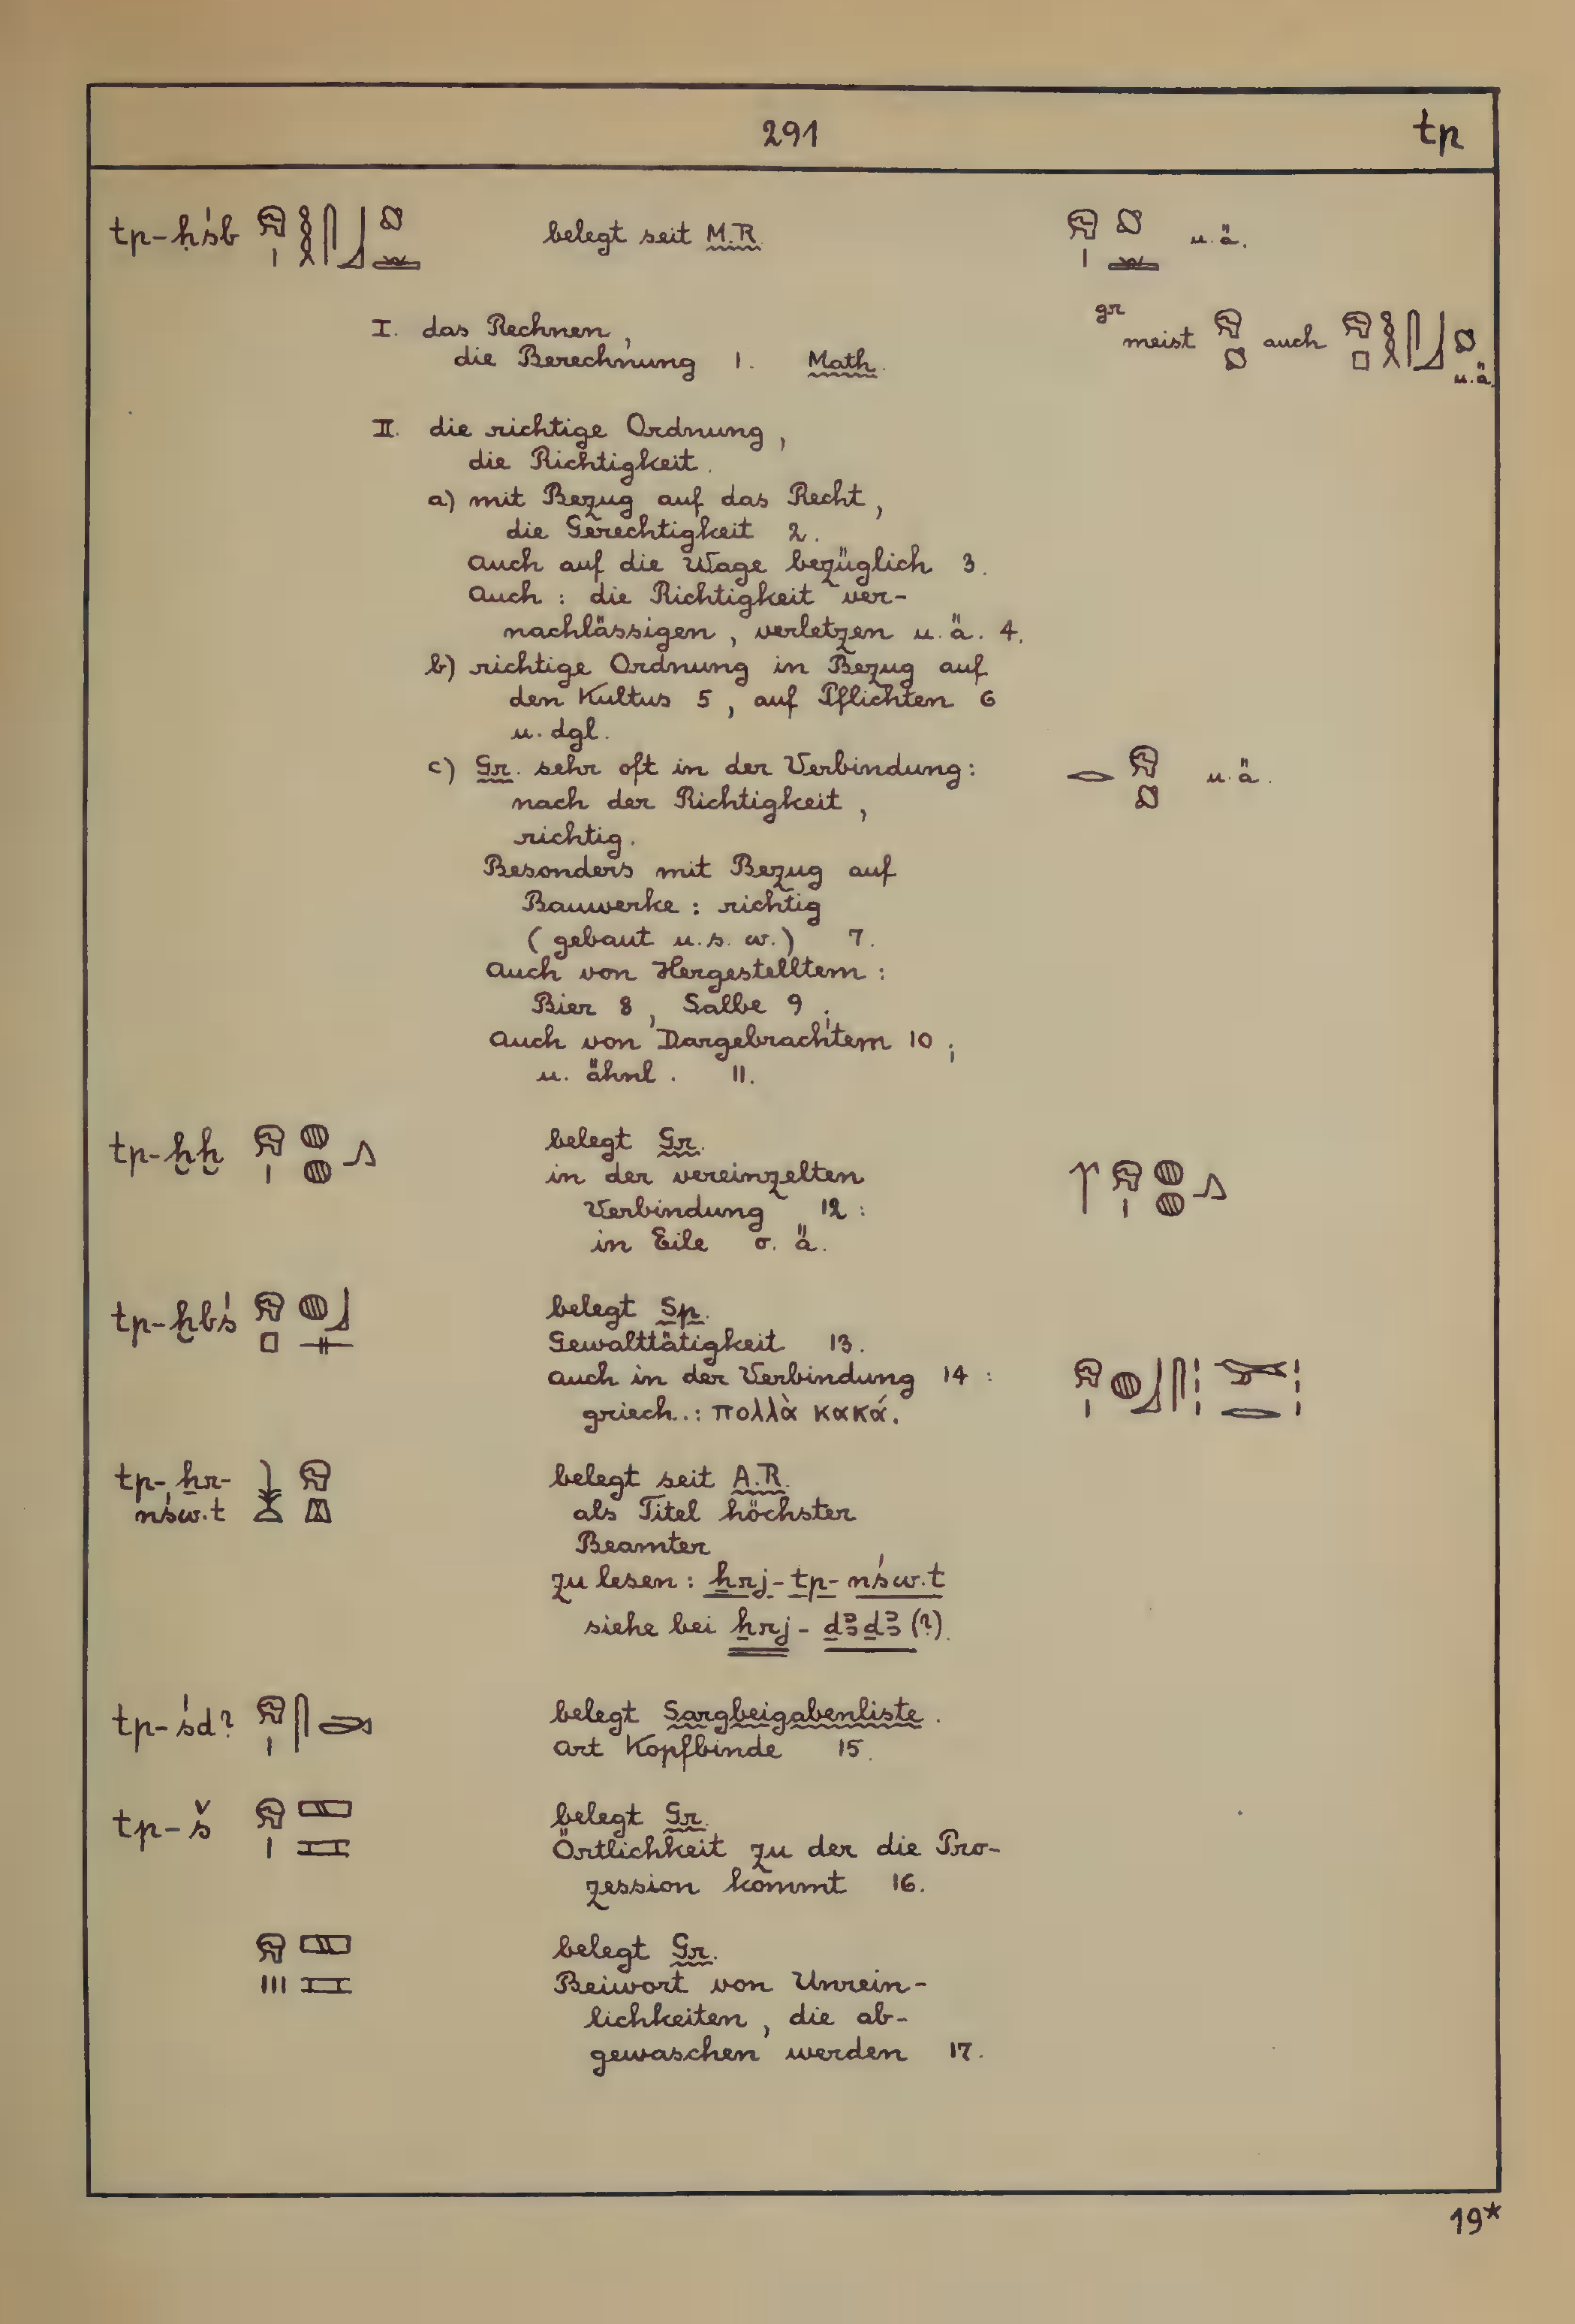 291 tp
tp-ḥśb belegt seit M.R. u.ä.
I. das Rechnen,
gr meist auch u.ä.
die Berechnung 1. Math.
II. die richtige Ordnung,
die Richtigkeit.
a) mit Bezug auf das Recht,
die Gerechtigkeit 2.
Auch auf die Wage bezüglich 3.
Auch : die Richtigkeit ver-
nachlässigen, verletzen u.ä. 4.
b) richtige Ordnung in Bezug auf
den Kultus 5, auf Pflichten 6
u. dgl.
c) Gr. sehr oft in der Verbindung: u.ä.
nach der Richtigkeit,
richtig.
Besonders mit Bezug auf
Bauwerke : richtig
(gebaut u.s.w.) 7.
Auch von Hergestelltem :
Bier 8, Salbe 9;
Auch von Dargebrachtem 10;
u. ähnl. 11.
tp-ḫḫ belegt Gr.
in der vereinzelten
Verbindung 12 :
in Eile o. ä.
tp-ḫbś belegt Sp.
Gewalttätigkeit 13.
auch in der Verbindung 14 :
griech.: πολλὰ κακά.
tp-ẖr- belegt seit A.R.
nśw.t als Titel höchster
Beamter
zu lesen : ẖrj-tp-nśw.t
siehe bei ẖrj-ḏꜣḏꜣ (?).
tp-śd? belegt Sargbeigabenliste.
Art Kopfbinde 15.
tp-š belegt Gr.
Örtlichkeit zu der die Pro-
zession kommt 16.
belegt Gr.
Beiwort von Unrein-
lichkeiten, die ab-
gewaschen werden 17.
19*